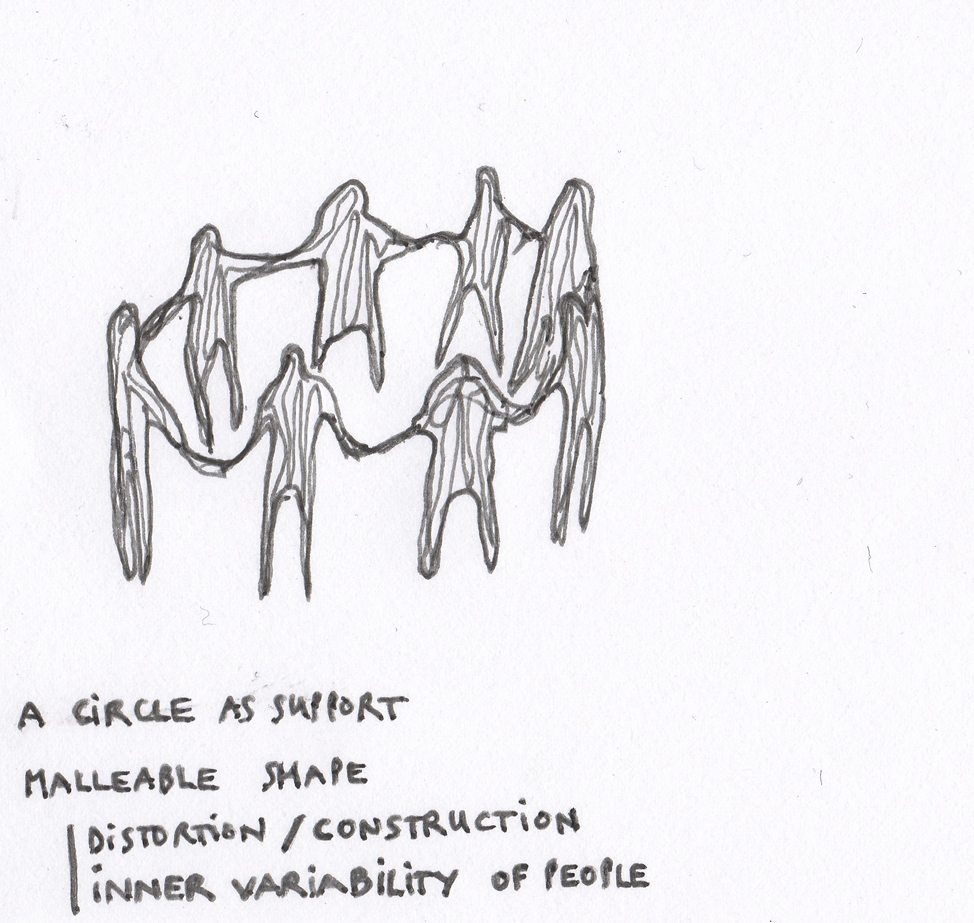 A CiRCLE AS SUPPORT
MALLEABLE SHAPE
DiSTORTiON / CONSTRUCTiON
iNNER VARiABiLiTY OF PEOPLE